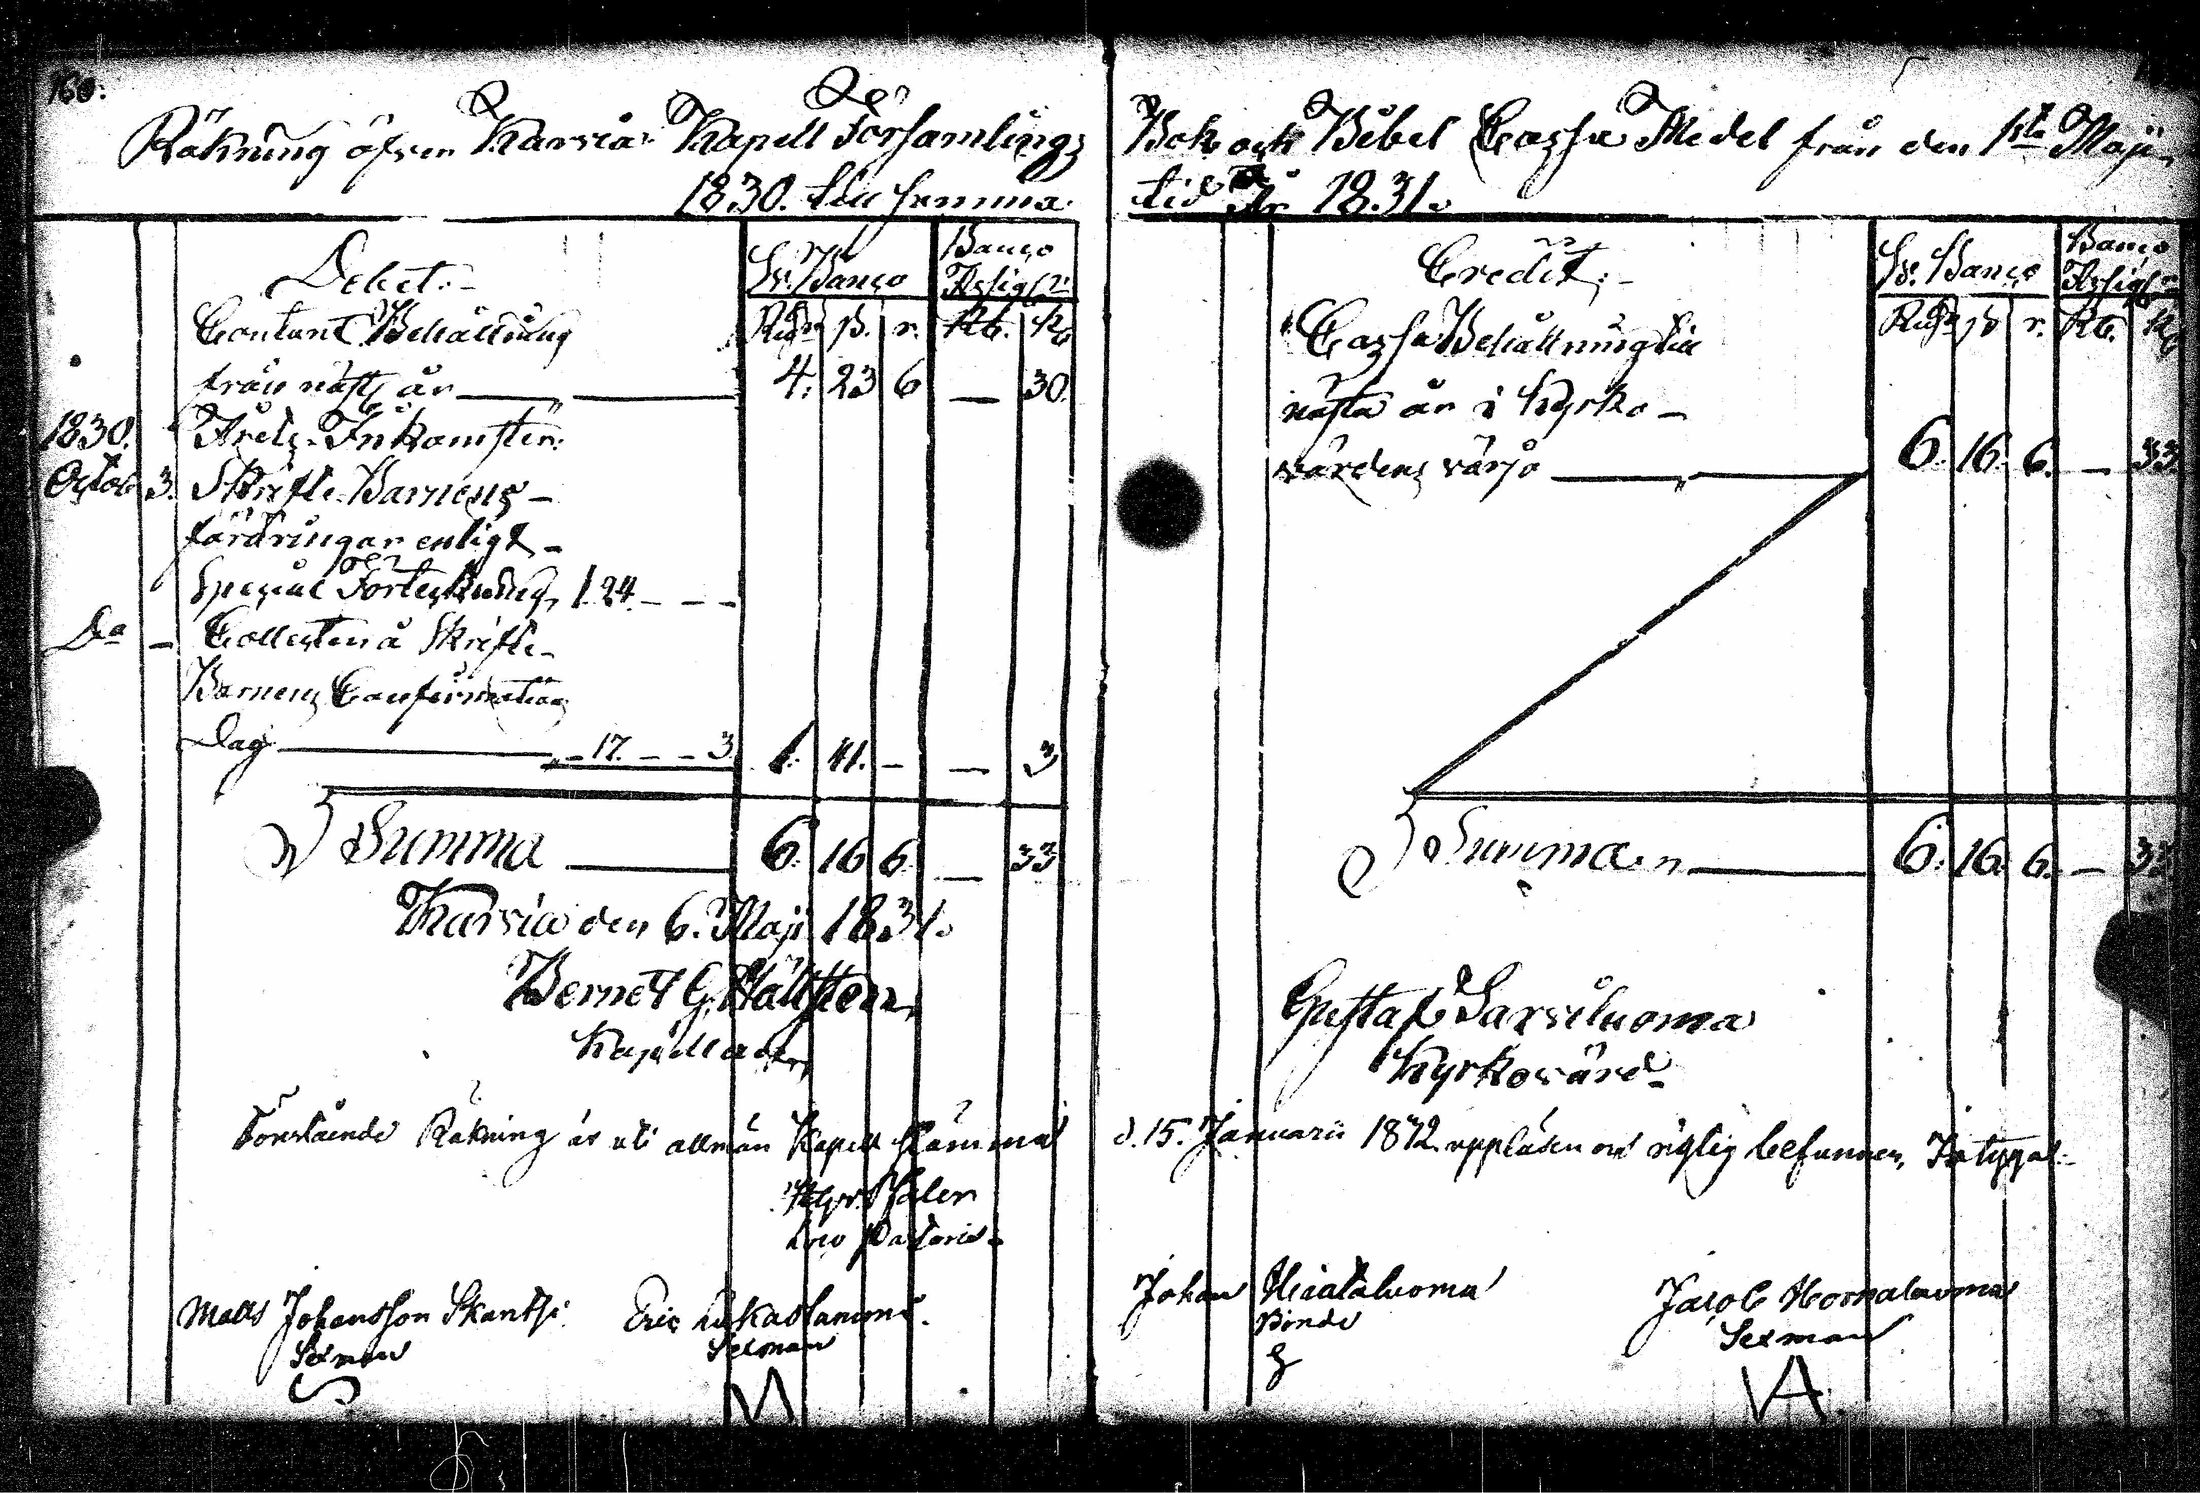 160.
Räkning öfver Karvia Kapell Församlings
1830. till samma
Debet:
Sv. Banco
Banco Assign:
Contant Behållning
Rdr ß. r. Rb. K
från näst. år 4. 23 6 — 30.
1830. Årets Inkomster:
Octob. 3. Skrifte-Barnens
fordringar enligt
Special Förteckning, 1. 24. - - -
Do — Collecten å Skrifte-
Barnens Confirmations
Dag - 17. - - 3 1. 41. - — 3
Summa 6. 16 6. — 33
Karvia den 6. Maji 1831.
Bernet G. Hällsten
Kapellan
Bok och Bibel Cassa Medel från den 1sta Maji
tid År 1831.
Credit:
Sv. Banco
Banco Assign:
Rdr ß r. Rb. K
Cassa Behållning till
nästa år i Kyrko-
värdens värjo 6. 16. 6. — 33
Summa 6. 16. 6. — 33
Gustaf Sarviluoma
Kyrkovärd
Förestående Räkning är uti allmän Kapell Stämma d. 15. Januarii 1832 uppläsen och rigtig befunnen, Betygar:
loco Pastoris
Matts Johansson Skantsi
Sexman
Eric Lukaslammi.
Sexman
Johan Hietaluoma
Bonde
Jacob Hornaluoma
Sexman